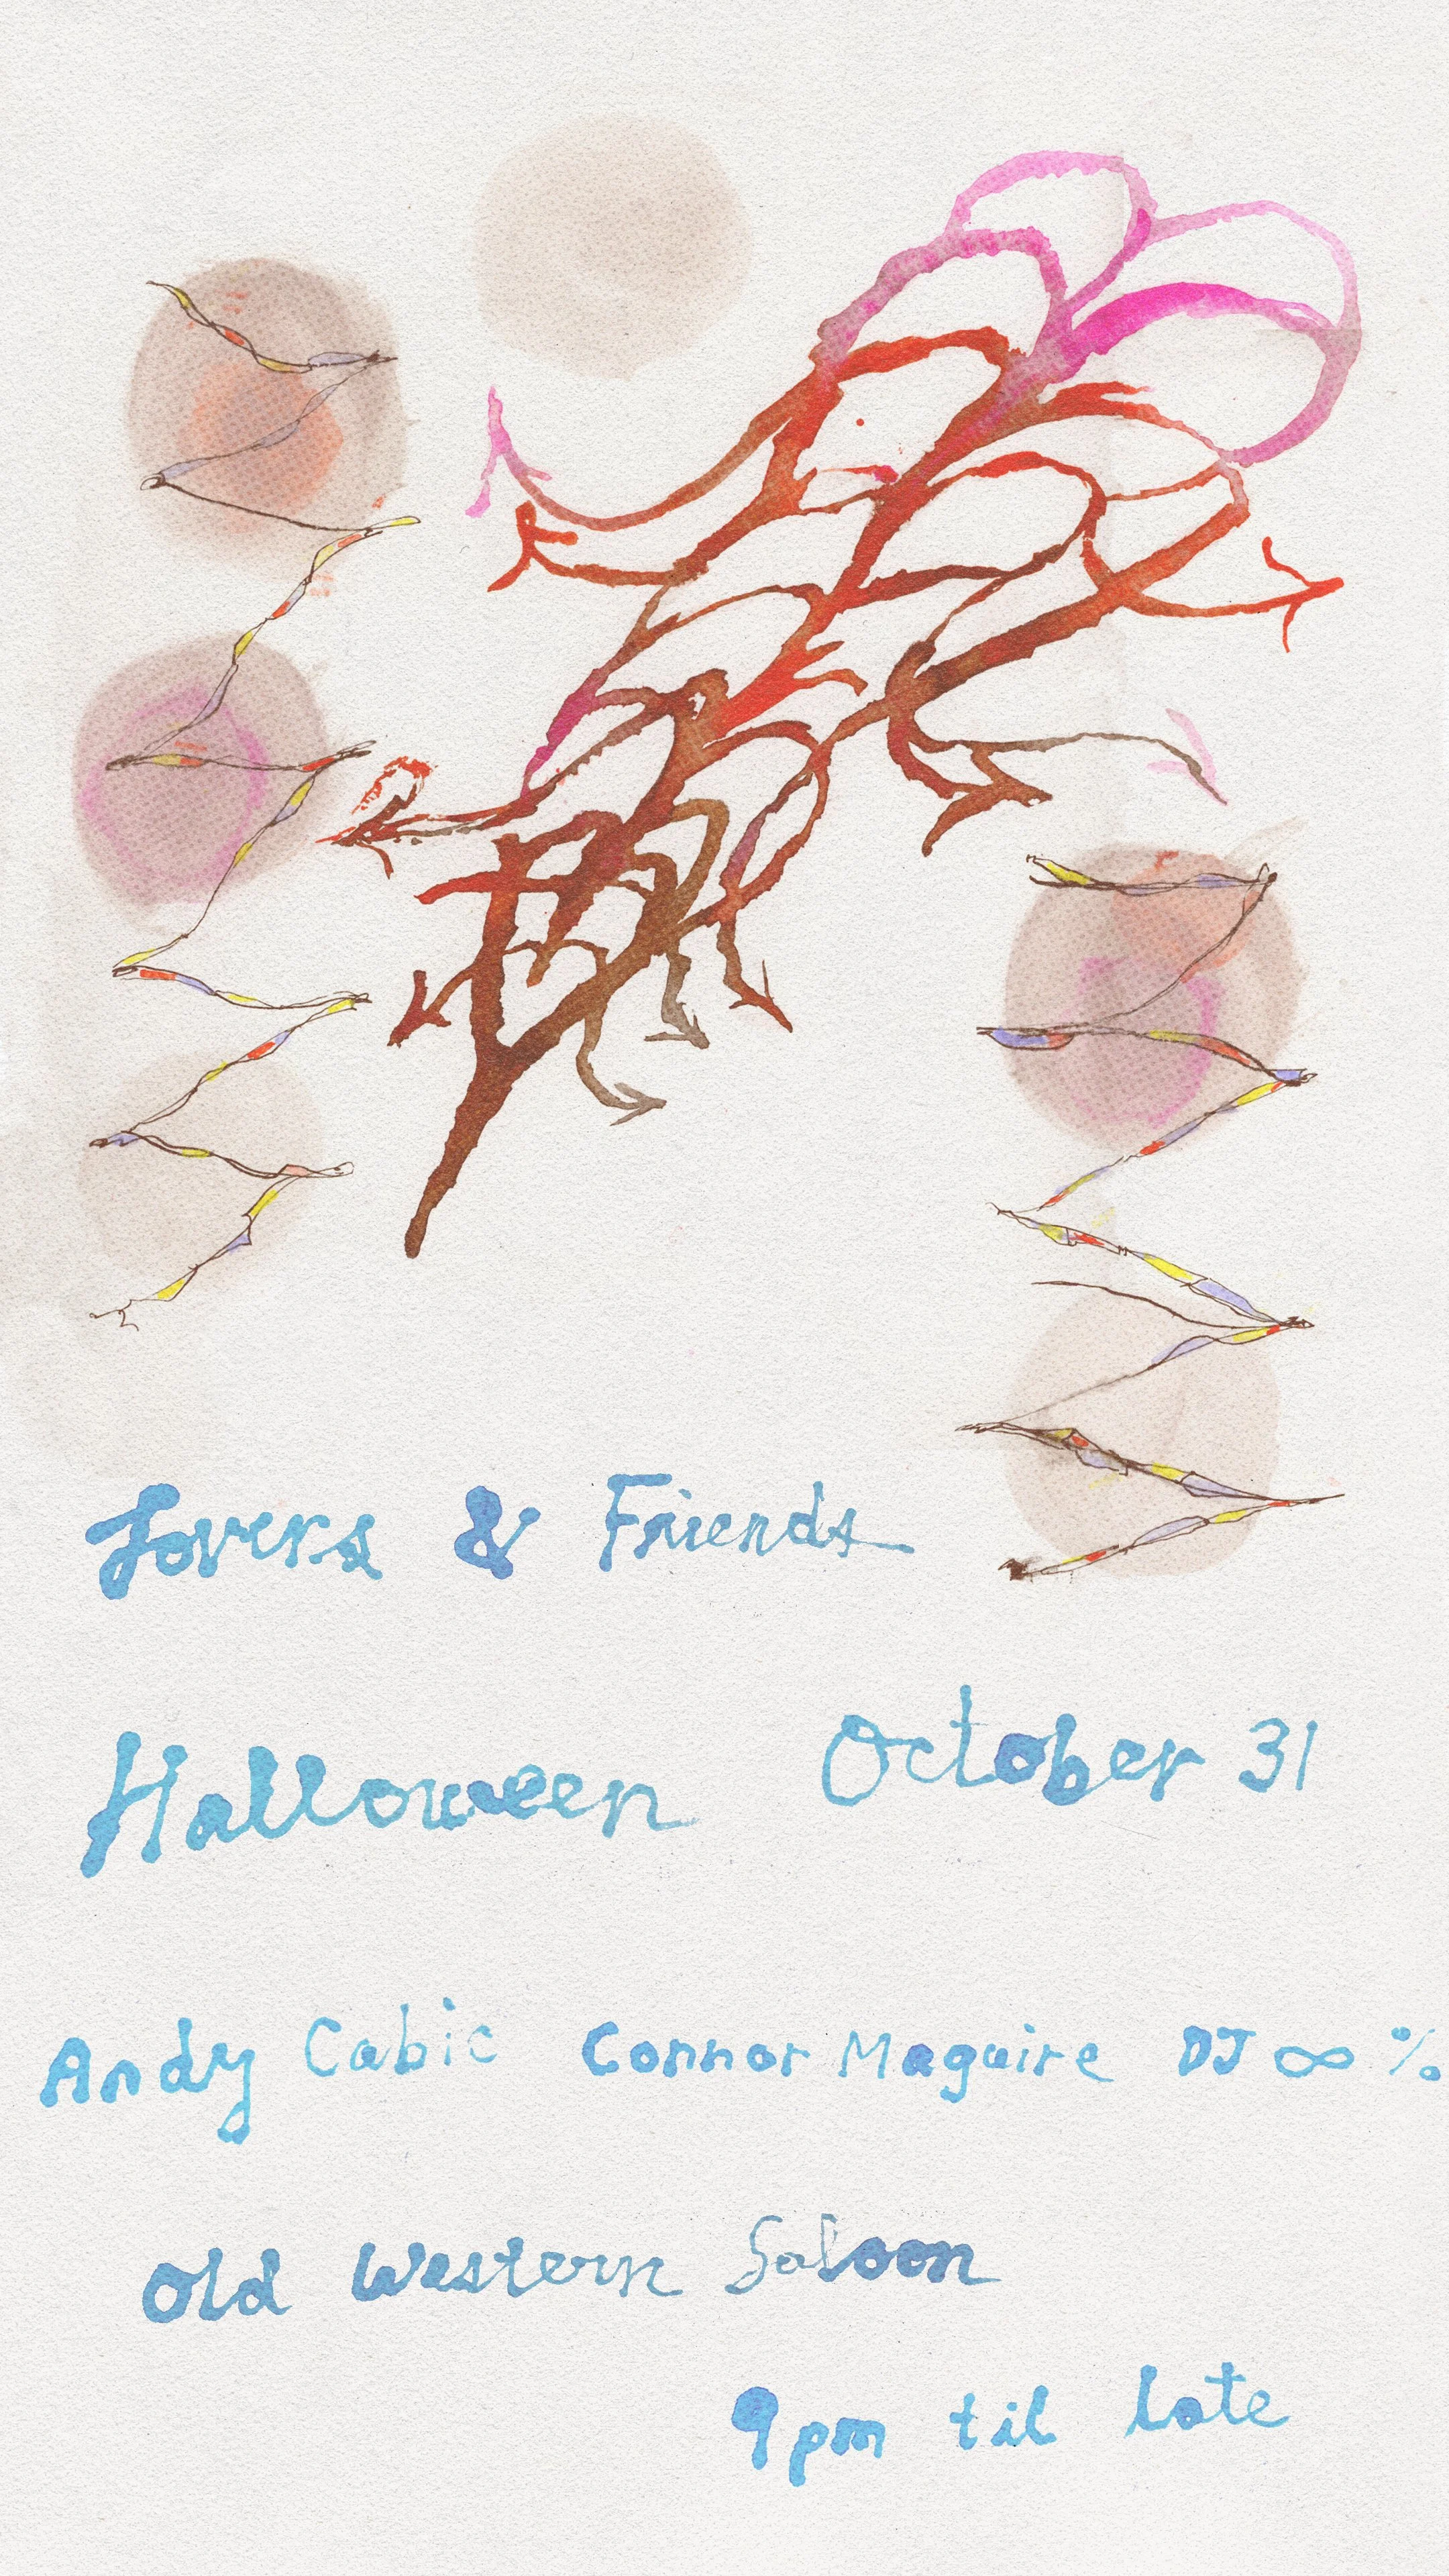 Lovers & Friends
Halloween October 31
Andy Cabic Connor Maguire DJ ∞ %
Old Western Saloon
9pm til late